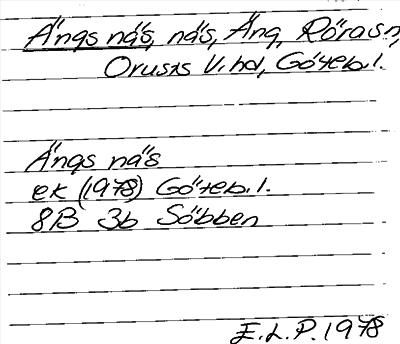 Ängs näs, näs, Äng, Röra sn,
Orusts V. hd, Göteb. l.
Ängs näs
ek (1978) Göteb. l.
8B 3b Säbben
E.L.P. 1978